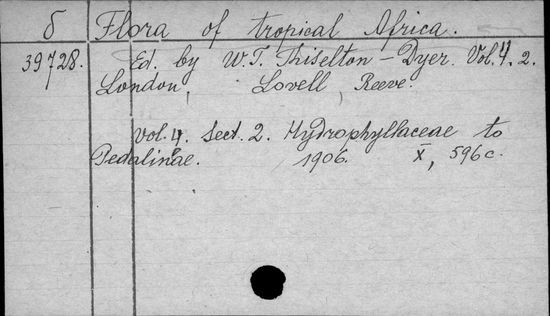 δ Flora of tropical Africa.
39728. Ed. by W. T. Thiselton-Dyer. Vol. 4. 2.
London, Lovell Reeve.
Vol. 4. Sect. 2. Hydrophyllaceae to
Pedalinae. 1906. X, 596 c.